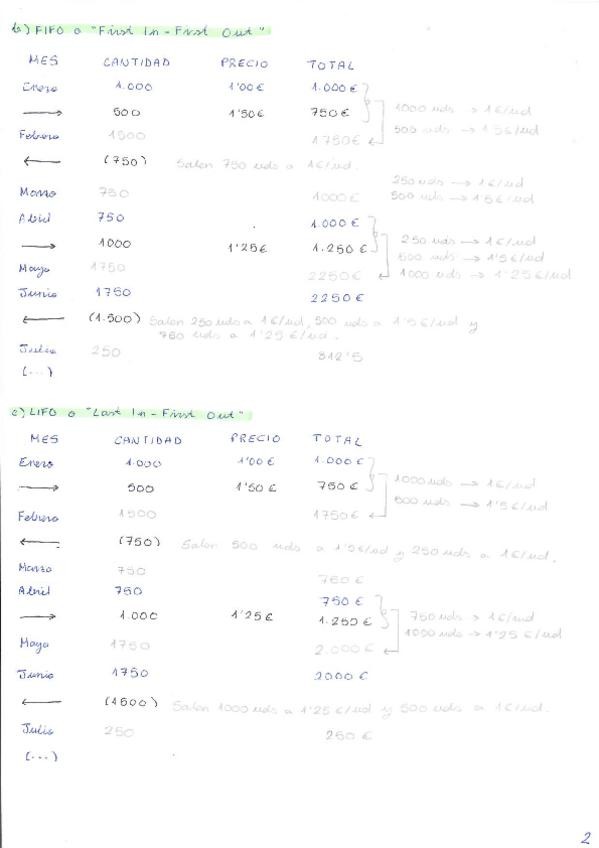 b) FIFO o "First In - First Out"
MES CANTIDAD PRECIO TOTAL
Enero 1.000 1'00€ 1.000€
→ 500 1'50€ 750€ 1000 uds → 1€/ud
Febrero 1500 1750€ 500 uds → 1'5€/ud
← (750) Salen 750 uds a 1€/ud.
250 uds → 1€/ud
Marzo 750 1000€ 500 uds → 1'5€/ud
Abril 750 1.000€
→ 1000 1'25€ 1.250€ 250 uds → 1€/ud
500 uds → 1'5€/ud
Mayo 1750 2250€ 1000 uds → 1'25€/ud
Junio 1750 2250€
← (1.500) Salen 250 uds a 1€/ud, 500 uds a 1'5€/ud y
750 uds a 1'25€/ud.
Julio 250 312'5
(...)
c) LIFO o "Last In - First Out"
MES CANTIDAD PRECIO TOTAL
Enero 1.000 1'00€ 1.000€
→ 500 1'50€ 750€ 1000 uds → 1€/ud
Febrero 1500 1750€ 500 uds → 1'5€/ud
← (750) Salen 500 uds a 1'5€/ud y 250 uds a 1€/ud.
Marzo 750 750€
Abril 750 750€
→ 1.000 1'25€ 1.250€ 750 uds → 1€/ud
Mayo 1750 2.000€ 1000 uds → 1'25€/ud
Junio 1750 2000€
← (1500) Salen 1000 uds a 1'25€/ud y 500 uds a 1€/ud.
Julio 250 250€
(...)
2